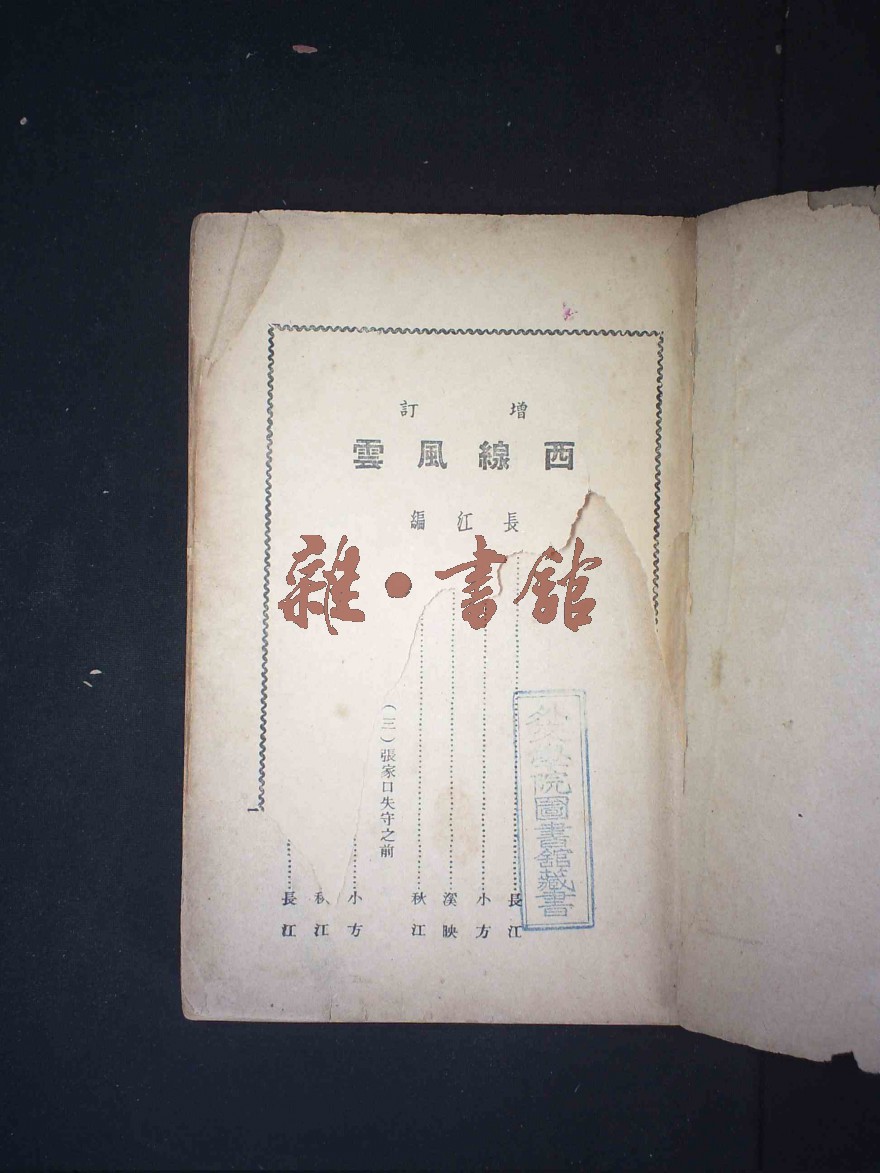 增訂
西線風雲
長江編
長江
小方
溪映
秋江
(三)張家口失守之前
小方
秋江
長江
雜·書館
學院圖書館藏書